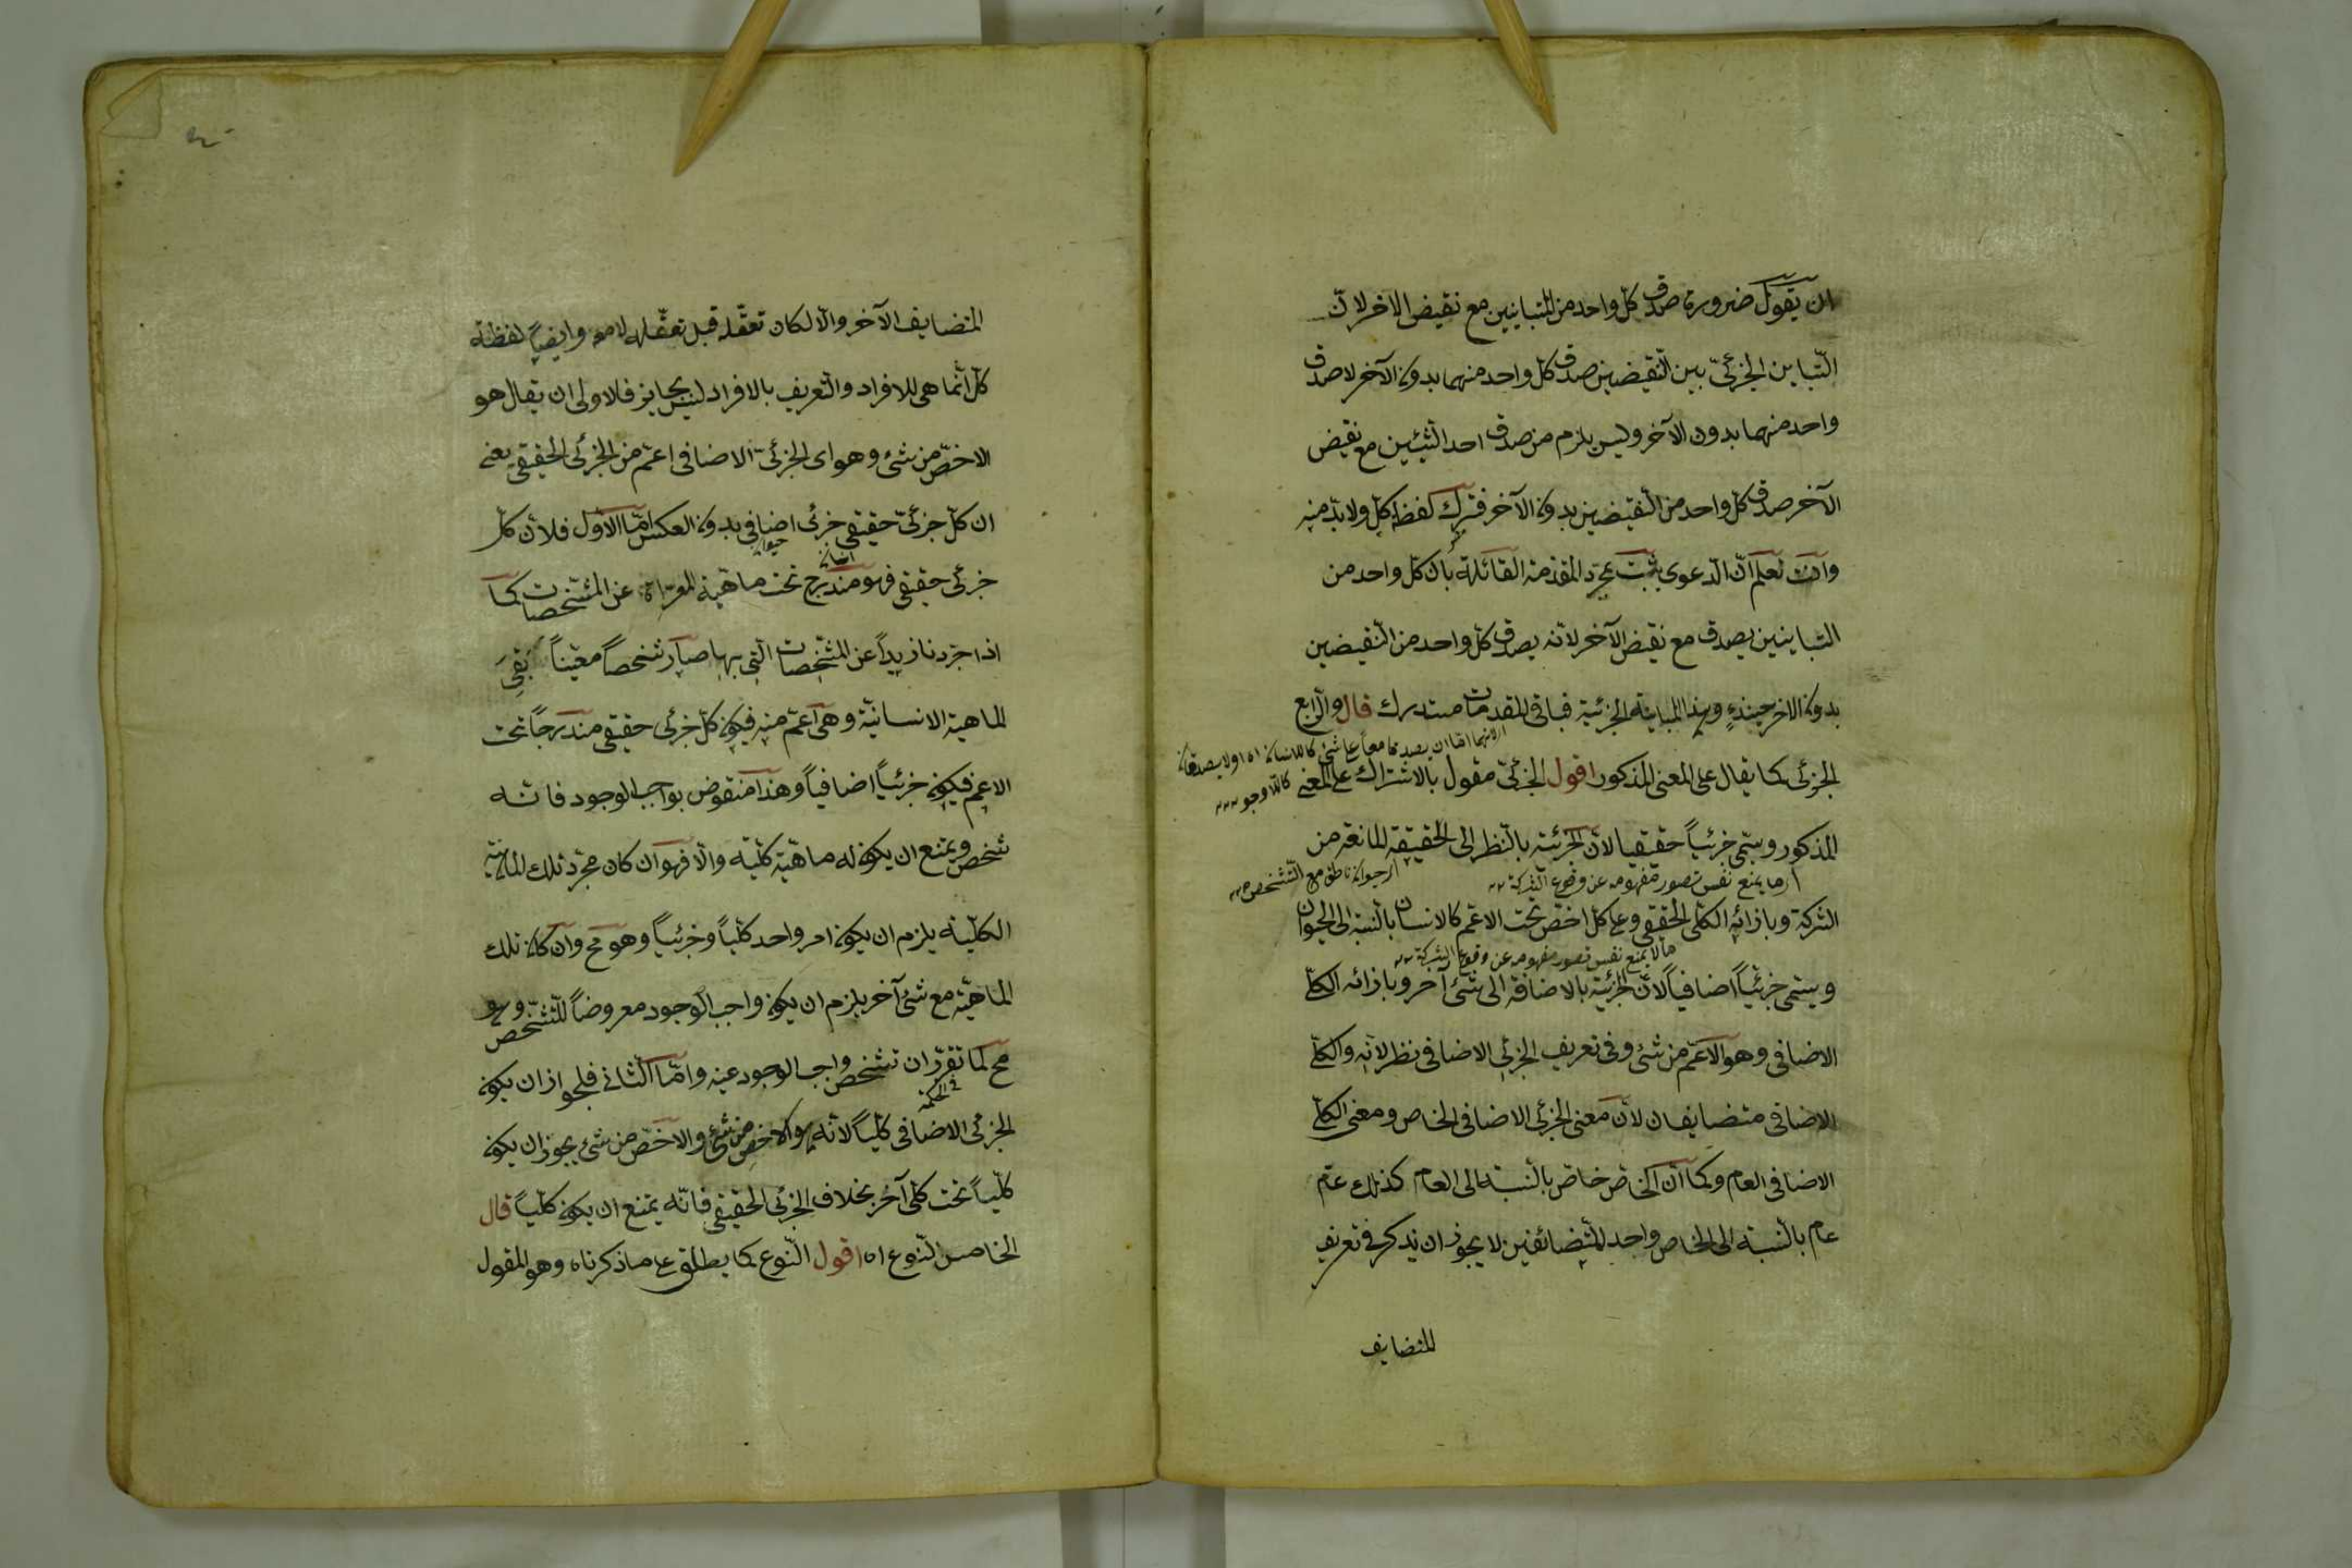 ان يقول ضرورة صدق كل واحد من المتباينين مع نقيض الاخر لان
التباين الجزئي بين النقيضين صدق كل واحد منهما بدون الآخر لا صدق
واحد منهما بدون الآخر وليس يلزم من صدق احد الشيئين مع نقيض
الآخر صدق كل واحد من النقيضين بدون الآخر فترك لفظ كل ولا بد منه
وانت تعلم ان الدعوى يثبت بمجرد المقدمة القائلة بان كل واحد من
المتباينين يصدق مع نقيض الآخر لانه يصدق كل واحد من النقيضين
بدون الاخر حينئذ وهذا المباينة الجزئية فباقي المقدمات مستدرك قال والرابع
لانهما اما ان يصدقا معا على شئ كاللاانسان اه او لا يصدقان
الجزئى كما يقال على المعنى المذكور اقول الجزئى مقول بالاشتراك على المعنى
كاللاوجود
المذكور ويسمى جزئياً حقيقيا لان الجزئية بالنظر الى الحقيقة المانعة من
اى ما يمنع نفس تصور مفهومه عن وقوع الشركة
اى حيوان ناطق مع التشخص
الشركة وبازائه الكلى الحقيقى وعلى كل اخص تحت الاعم كالانسان بالنسبة الى الحيوان
ما لا يمنع نفس تصور مفهومه عن وقوع الشركة
ويسمى جزئياً اضافياً لان الجزئية بالاضافة الى شئ آخر وبازائه الكلى
الاضافى وهو الاعم من شئ وفى تعريف الجزئى الاضافى نظر لانه والكلى
الاضافى متضايفان لان معنى الجزئى الاضافى الخاص ومعنى الكلى
الاضافى العام وكما ان الخاص خاص بالنسبة الى العام كذلك عام
عام بالنسبة الى الخاص واحد المتضائفين لا يجوز ان يذكر فى تعريف
المتضايف
المتضايف الآخر والا لكان تعقله قبل تعقله لا معه وايضاً لفظة
كل انما هى للافراد والتعريف بالافراد ليس بجايز فالاولى ان يقال هو
الاخص من شئ وهو اى الجزئى الاضافى اعم من الجزئى الحقيقى يعنى
ان كل جزئى حقيقى جزئى اضافى بدون العكس اما الاول فلان كل
حيوان
انسان
جزئى حقيقى فهو مندرج تحت ماهية المعراة عن المشخصات كما
اذا جردنا زيداً عن المشخصات التى بها صار شخصاً معيناً بقى
الماهية الانسانية وهى اعم منه فيكون كل جزئى حقيقى مندرجاً تحت
الاعم فيكون جزئياً اضافياً وهذا منقوض بواجب الوجود فانه
شخص ويمتنع ان يكون له ماهية كلية والا فهو ان كان مجرد تلك الماهية
الكلية يلزم ان يكون امر واحد كلياً وجزئياً وهو مح وان كان تلك
الماهية مع شئ آخر يلزم ان يكون واجب الوجود معروضاً للتشخص وهو
مح لما تقرر ان تشخص واجب الوجود عينه واما الثانى فلجواز ان يكون
فى الحكمة
الجزئى الاضافى كلياً لانه هو الاخص من شئ والاخص من شئ يجوز ان يكون
كلياً تحت كلى آخر بخلاف الجزئى الحقيقى فانه يمتنع ان يكون كلياً قال
الخامس النوع اه اقول النوع كما يطلق على ما ذكرناه وهو المقول